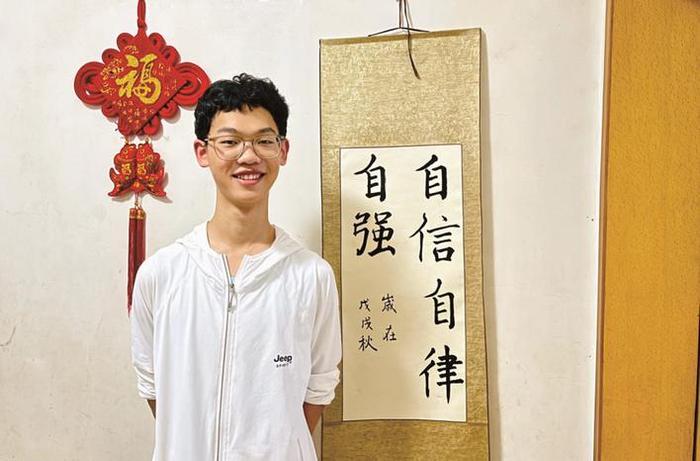 福
自信自律
自强
歲在
戊戌秋
Jeep